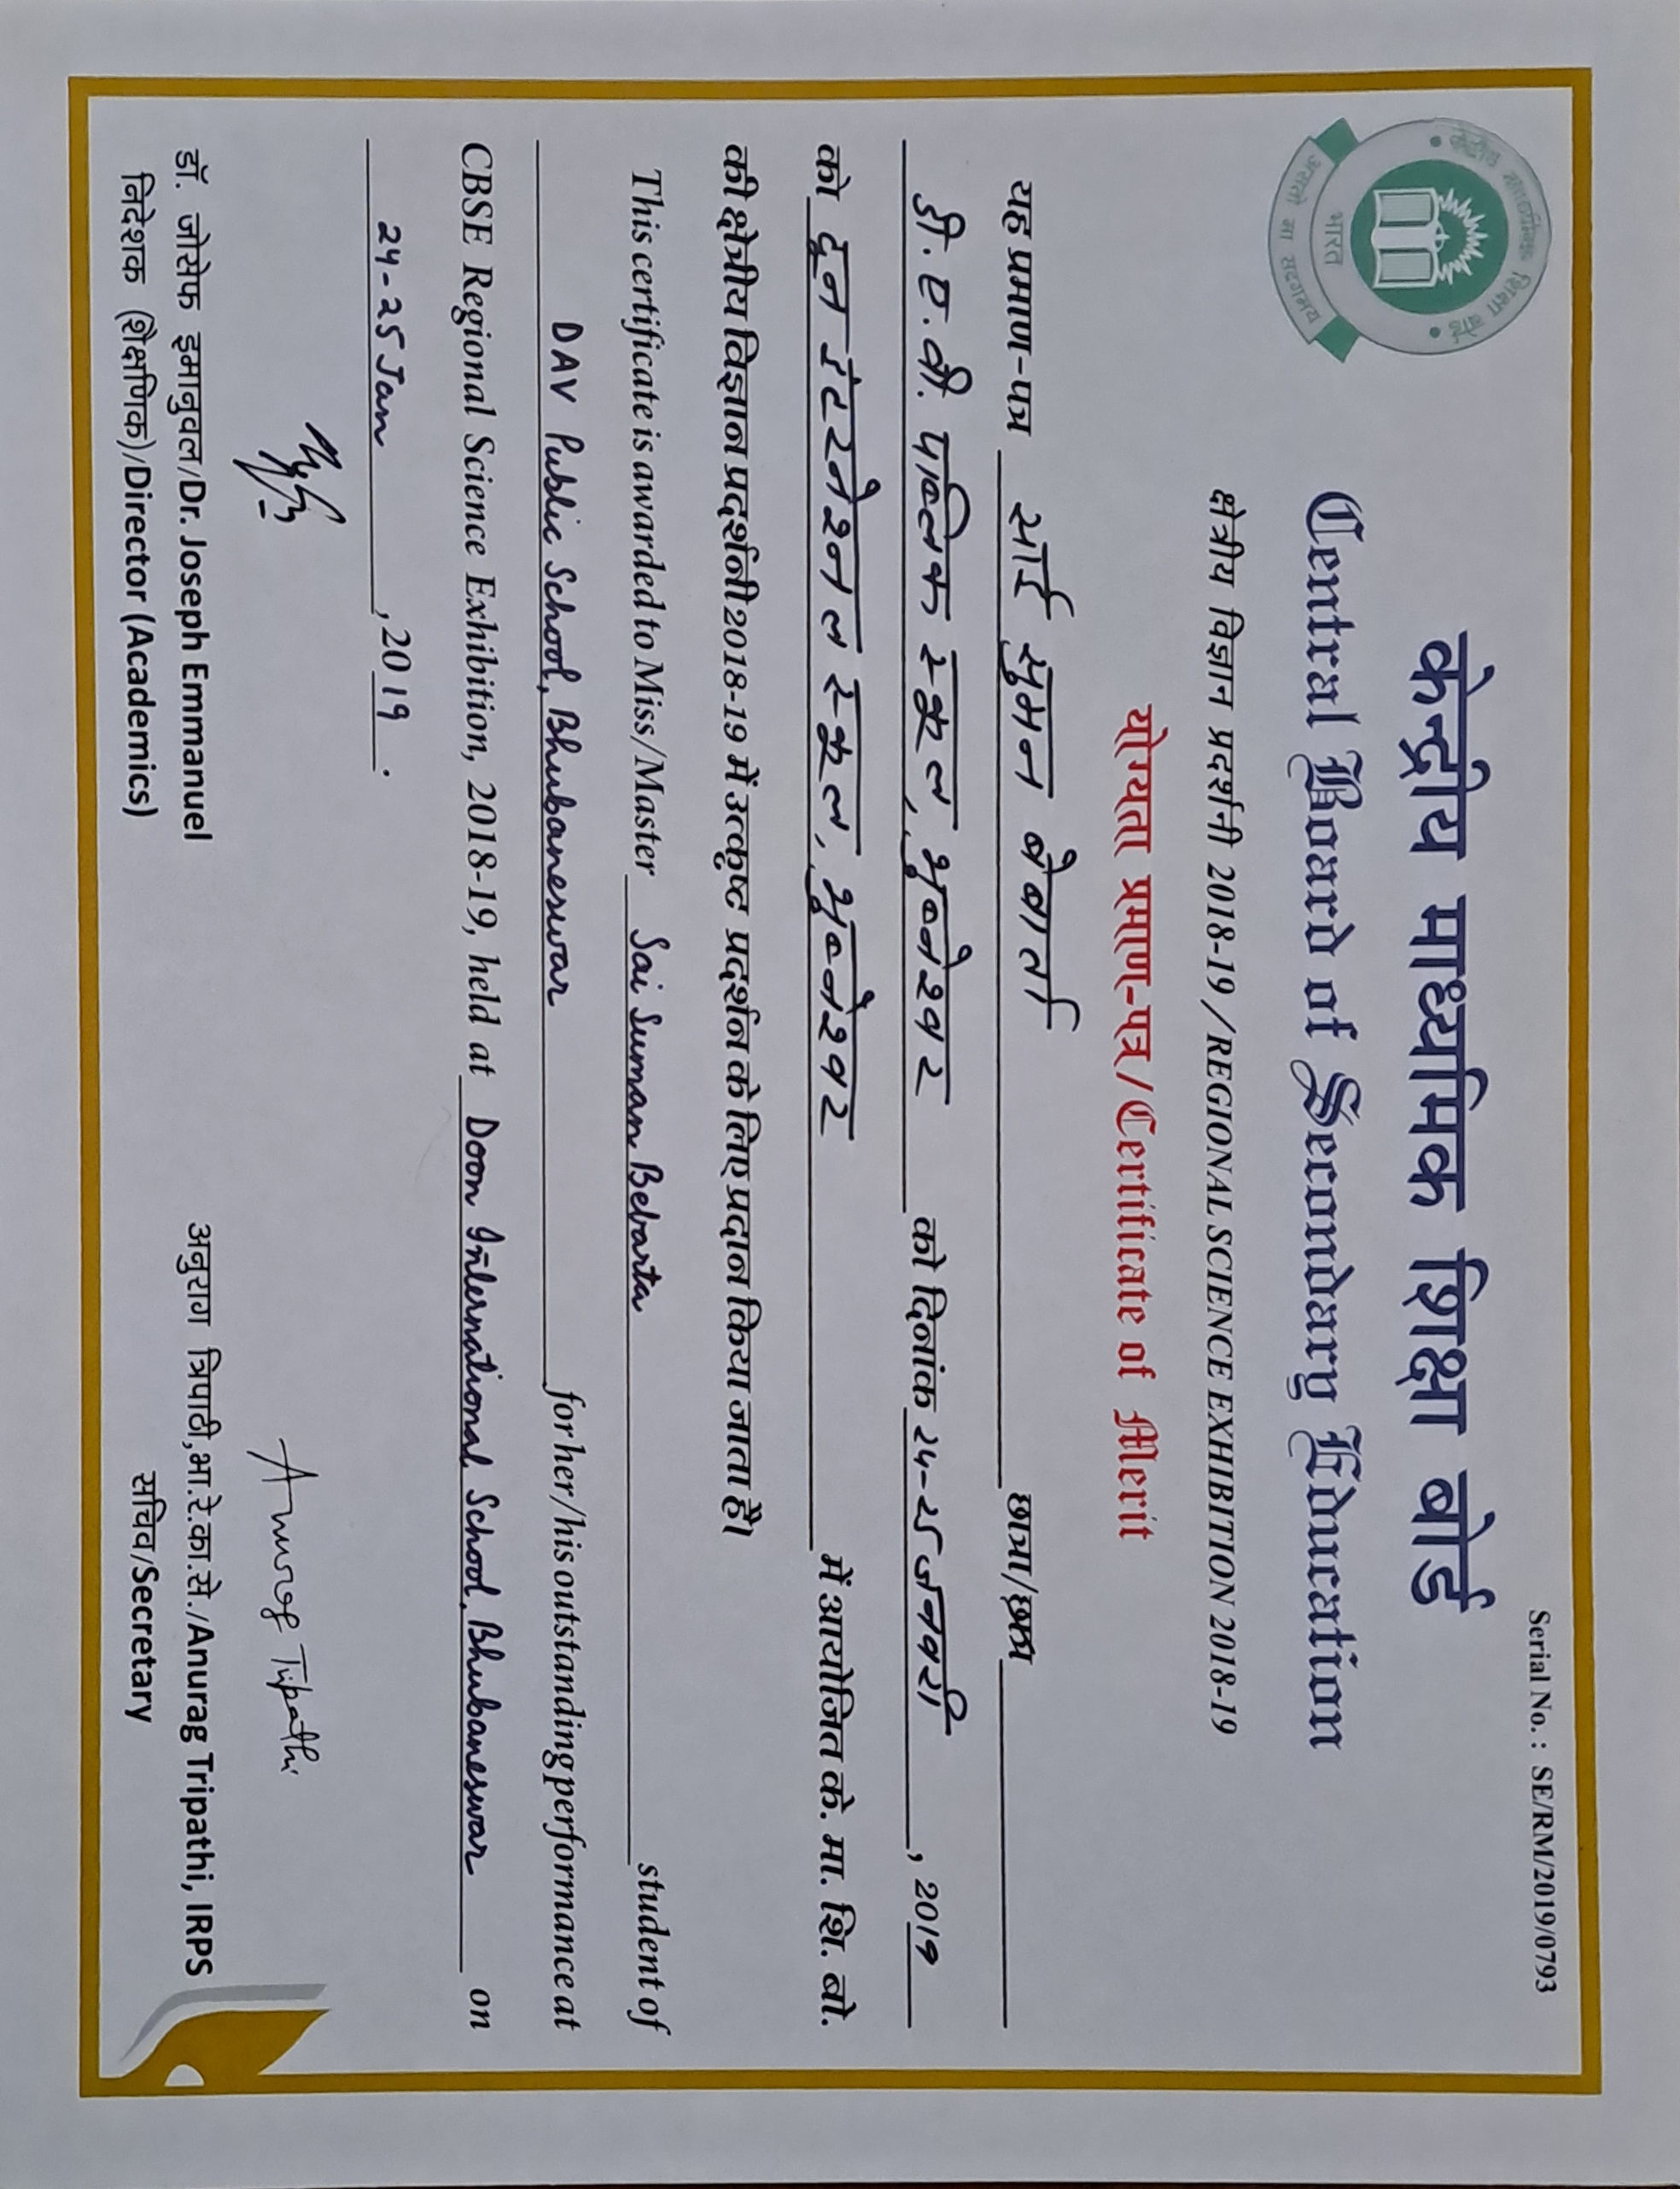 Serial No. : SE/RM/2019/0793
केन्द्रीय माध्यमिक शिक्षा बोर्ड
भारत
असतो मा सद्गमय
केन्द्रीय माध्यमिक शिक्षा बोर्ड
Central Board of Secondary Education
क्षेत्रीय विज्ञान प्रदर्शनी 2018-19 / REGIONAL SCIENCE EXHIBITION 2018-19
योग्यता प्रमाण-पत्र / Certificate of Merit
यह प्रमाण-पत्र साई सुमन बेबार्ता छात्रा/छात्र
डी. ए. वी. पब्लिक स्कूल, भुब्नेश्वर को दिनांक 24-25 जनवरी , 2019
को दून इंटरनेश्नल स्कूल, भुब्नेश्वर में आयोजित के. मा. शि. बो.
की क्षेत्रीय विज्ञान प्रदर्शनी 2018-19 में उत्कृष्ट प्रदर्शन के लिए प्रदान किया जाता है।
This certificate is awarded to Miss/Master Sai Suman Bebarta student of
DAV Public School, Bhubaneswar for her/his outstanding performance at
CBSE Regional Science Exhibition, 2018-19, held at Doon International School, Bhubaneswar on
24-25 Jan , 2019 .
Anurag Tripathi
डॉ. जोसेफ इमानुवल/Dr. Joseph Emmanuel
निदेशक (शैक्षणिक)/Director (Academics)
अनुराग त्रिपाठी,भा.रे.का.से./Anurag Tripathi, IRPS
सचिव/Secretary